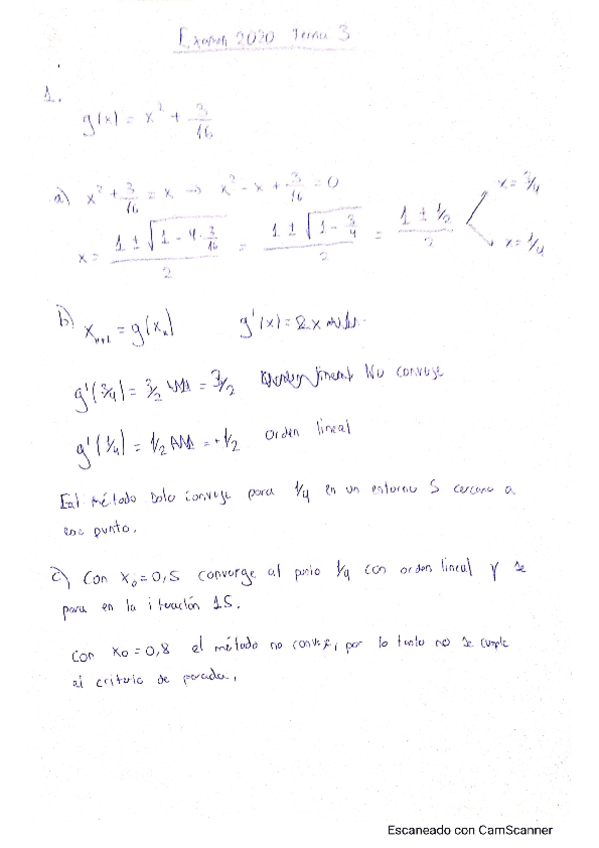 Examen 2020 Tema 3
1.
g(x) = x² + 3/16
a) x² + 3/16 = x → x² - x + 3/16 = 0
x = (1 ± √(1 - 4·3/16))/2 = (1 ± √(1 - 3/4))/2 = (1 ± 1/2)/2 x = 3/4 x = 1/4
b) xₙ₊₁ = g(xₙ) g'(x) = 2x
g'(3/4) = 3/2 = 3/2 No converge
g'(1/4) = 1/2 = 1/2 orden lineal
El método solo converge para 1/4 en un entorno S cercano a
ese punto.
c) Con x₀ = 0,5 converge al punto 1/4 con orden lineal y se
para en la iteración 15.
Con x₀ = 0,8 el método no converge, por lo tanto no se cumple
el criterio de parada.
Escaneado con CamScanner